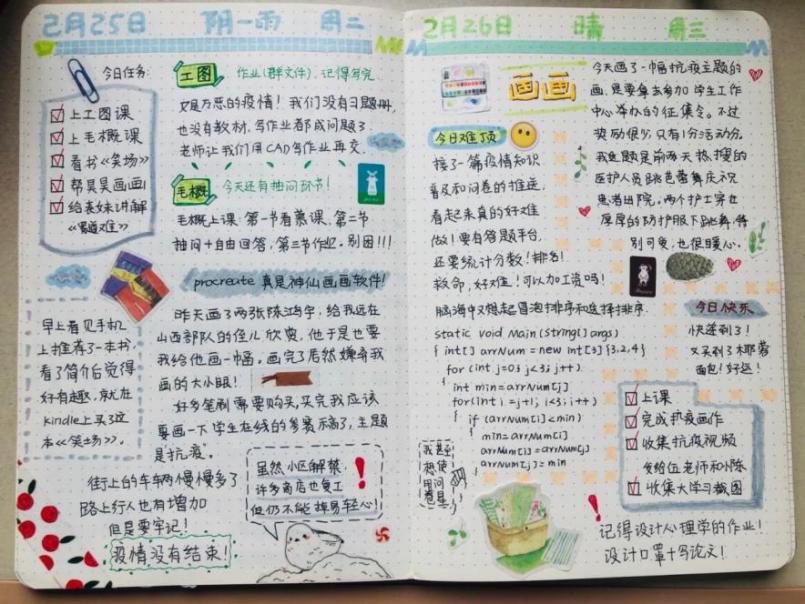 2月25日 阴-雨 周二
今日任务:
上工图课
上毛概课
看书《笑场》
帮昊昊画画
给表妹讲解
《蜀道难》
工图 作业(群文件),记得写完
万恶的疫情!我们没有习题册,
也没有教材,写作业都成问题了
老师让我们用CAD写作业再交.
毛概 今天还有抽问环节!
毛概上课:第一节看慕课,第二节
抽问+自由回答,第三节作业.别困!!!
procreate 真是神仙画画软件!
昨天画了两张陈鸿宇,给我远在
山西部队的侄儿欣赏,他于是也要
我给他画一幅。画完了居然嫌弃我
画的大小眼!
好多笔刷需要购买,买完我应该
要画一下学生在线的参赛稿了,主题
是抗疫.
早上看见手机
上推荐了一本书,
看了简介后觉得
好有趣,就在
kindle上买了这
本《笑场》。
街上的车辆慢慢多了
路上行人也有增加
但是要牢记!
疫情没有结束!
虽然小区解禁,
许多商店也复工
但仍不能掉易轻心!
2月26日 晴 周三
画画
今天画了一幅抗疫主题的
画,是要拿去参加学生工作
中心举办的征集令。不过
奖励很少,只有1分活动分。
我选题是前两天热搜的
医护人员跳芭蕾舞庆祝
患者出院。两个护士穿在
厚厚的防护服下跳舞,特
别可爱,也很暖心。
今日难顶
接了一篇疫情知识
普及和问卷的推送,
看起来真的好难
做!要有答题平台,
还要统计分数!排名!
救命,好难!可以加工资吗!
脑海中又想起冒泡排序和选择排序.
static void Main(string[] args)
{ int[] arrNum = new int[3]{3,2,4}
for (int j=0; j<3; j++)
{ int min=arrNum[j]
for(int i=j+1; i<3; i++)
{ if (arrNum[i]<min)
{ min=arrNum[i]
arrNum[i]=arrNum[j]
arrNum[j]=min
今日快乐
快递到了!
又买到了椰蓉
面包!好运!
上课
完成抗疫画作
收集抗疫视频
发给伍老师和小陈
收集大学习截图
记得设计心理学的作业!
设计口罩+写论文!